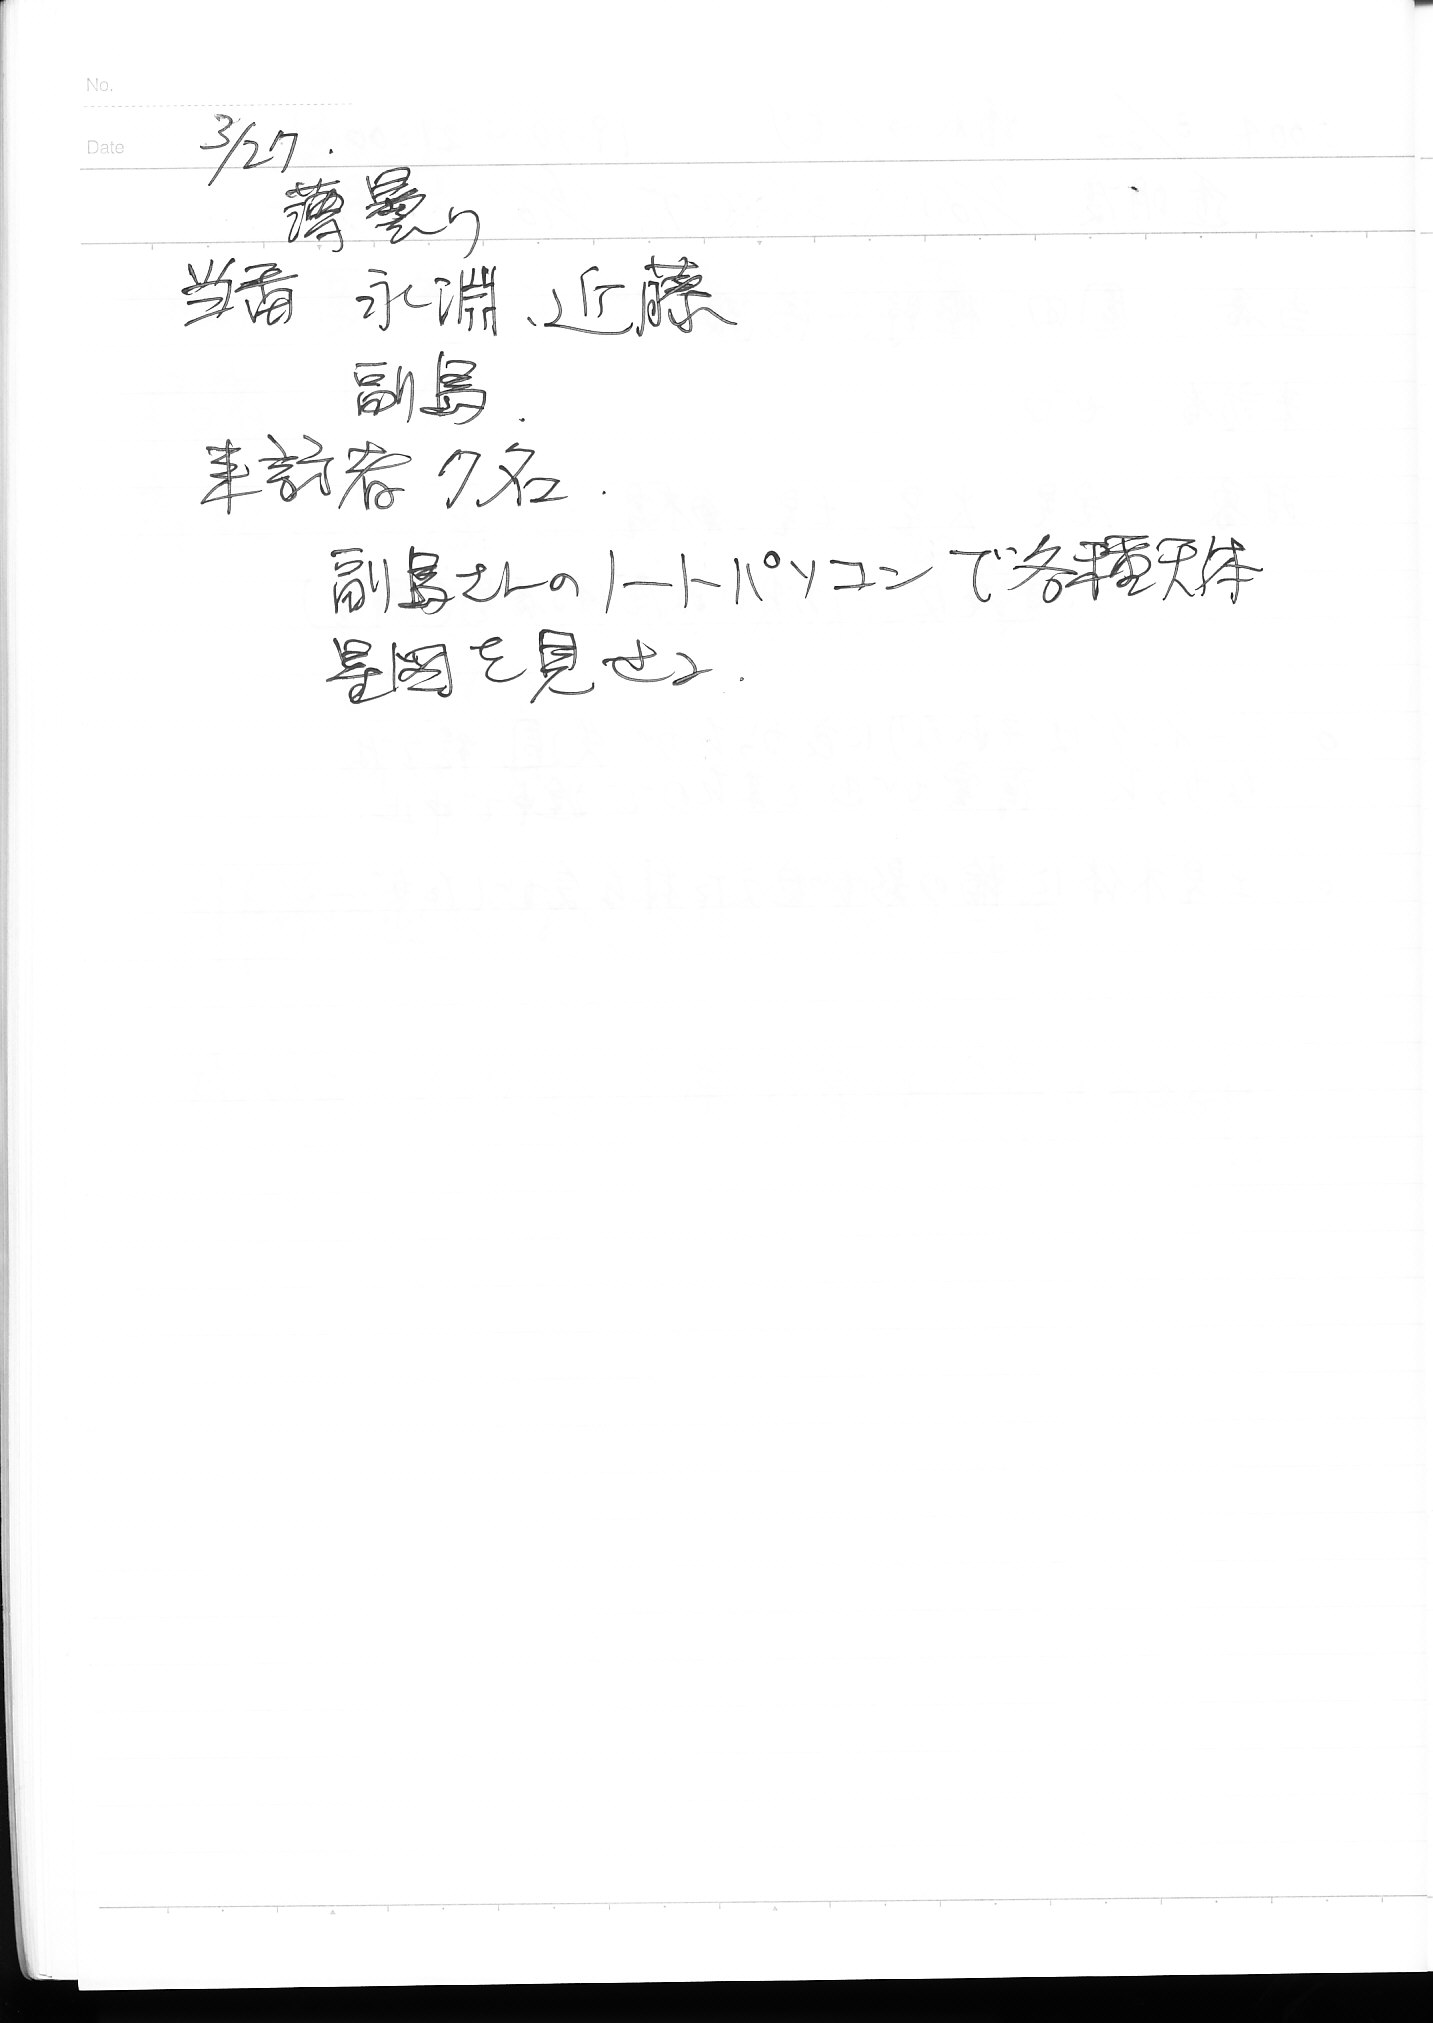 No.
Date 3/27.
薄曇り
当番 永淵、近藤
副島.
来訪者 7名.
副島さんのノートパソコンで各種天体
星図を見せる.